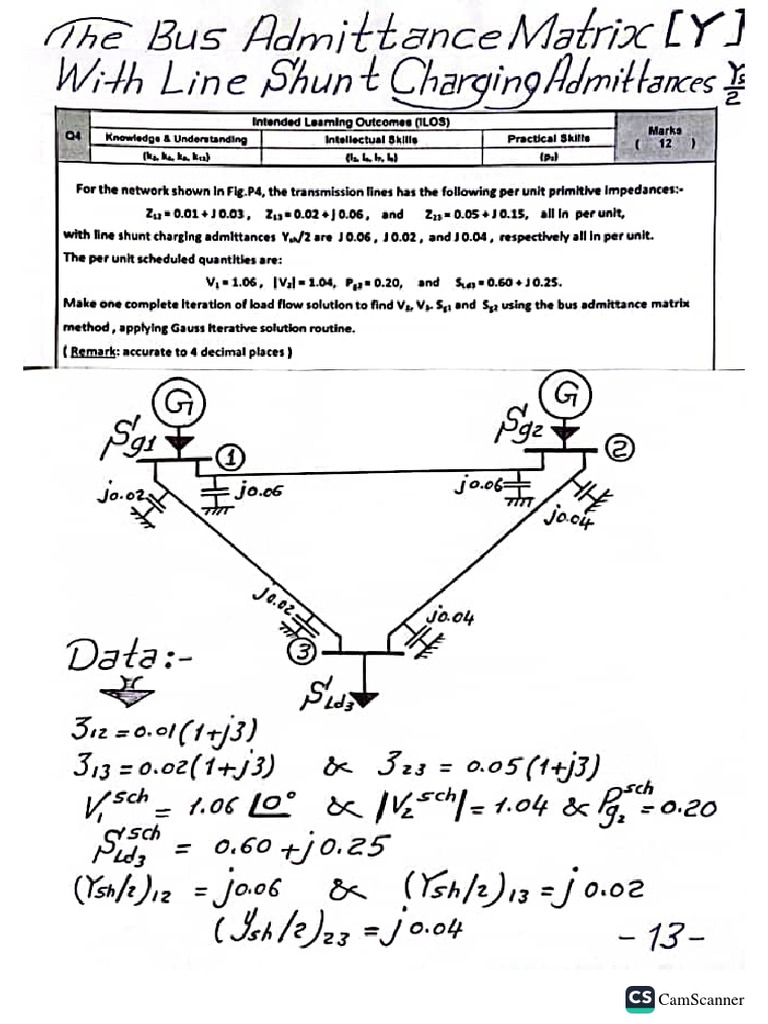 The Bus Admittance Matrix [Y]
With Line Shunt Charging Admittances Ys/2
Q4
Intended Learning Outcomes (ILOS)
Marks
( 12 )
Knowledge & Understanding
Intellectual Skills
Practical Skills
For the network shown in Fig.P4, the transmission lines has the following per unit primitive impedances:-
Z₁₂ = 0.01 + J 0.03 , Z₁₃ = 0.02 + j 0.06 , and Z₂₃ = 0.05 + J 0.15, all in per unit,
with line shunt charging admittances Yₛₕ/2 are J 0.06 , J 0.02 , and J 0.04 , respectively all in per unit.
The per unit scheduled quantities are:
V₁ = 1.06, |V₂| = 1.04, Pg₂ = 0.20, and S_Ld3 = 0.60 + J 0.25.
Make one complete iteration of load flow solution to find V₂, V₃, Sg1 and Sg2 using the bus admittance matrix
method , applying Gauss iterative solution routine.
( Remark: accurate to 4 decimal places )
G
G
Sg1
Sg2
1
2
j0.02
j0.06
j0.06
j0.04
j0.02
j0.04
3
S_Ld3
Data:-
z₁₂ = 0.01(1+j3)
z₁₃ = 0.02(1+j3) & z₂₃ = 0.05(1+j3)
V₁^sch = 1.06 ∠0° & |V₂^sch| = 1.04 & Pg₂^sch = 0.20
S_Ld3^sch = 0.60 + j0.25
(Ysh/2)₁₂ = j0.06 & (Ysh/2)₁₃ = j0.02
(Ysh/2)₂₃ = j0.04
-13-
CS CamScanner